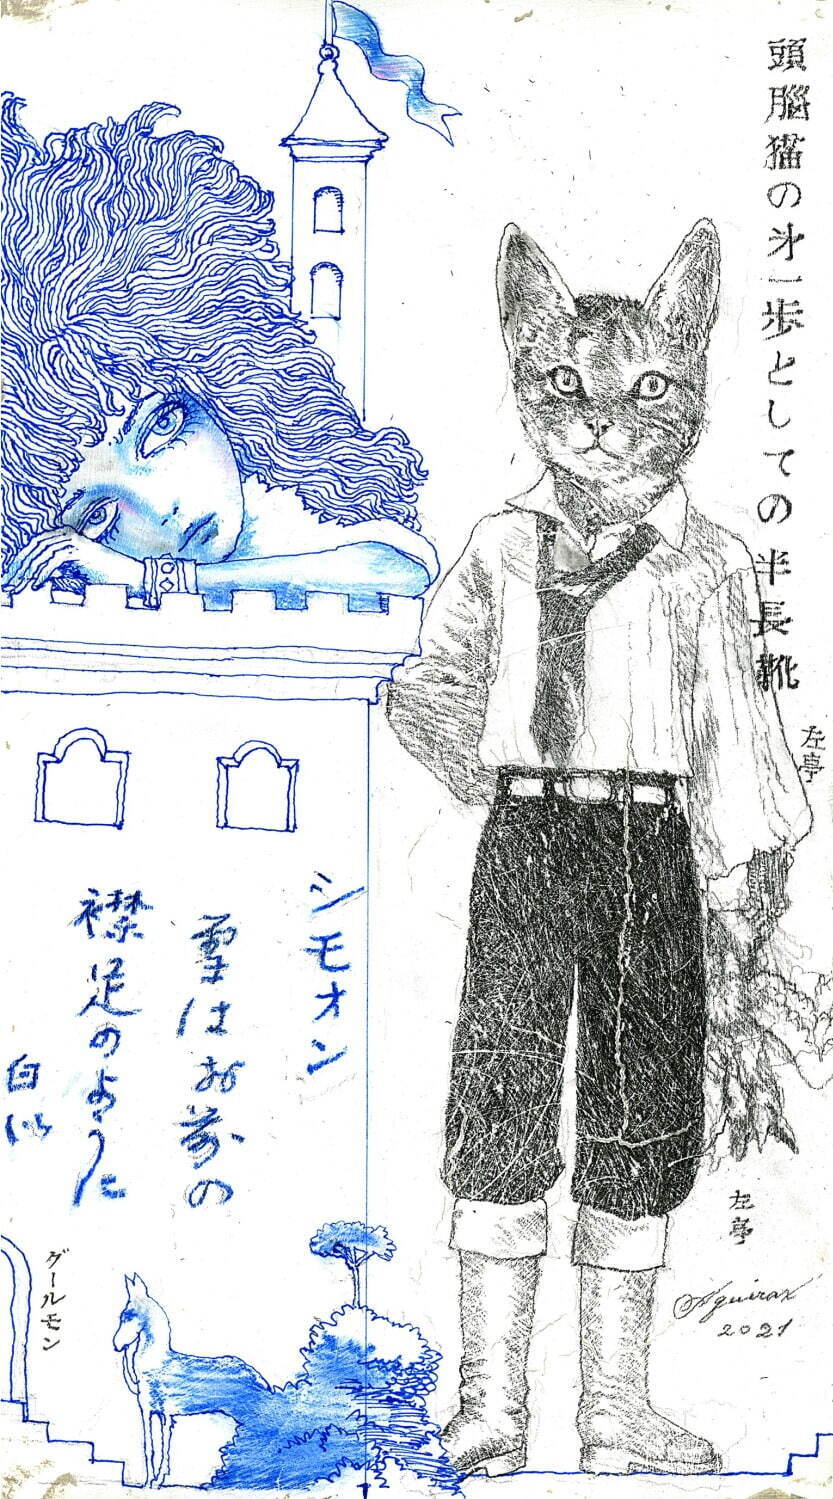 頭脳猫の才一歩としての半長靴
左亭
シモオン
雪はお前の
襟足のように
白い
グールモン
左亭
Aguirax
2021